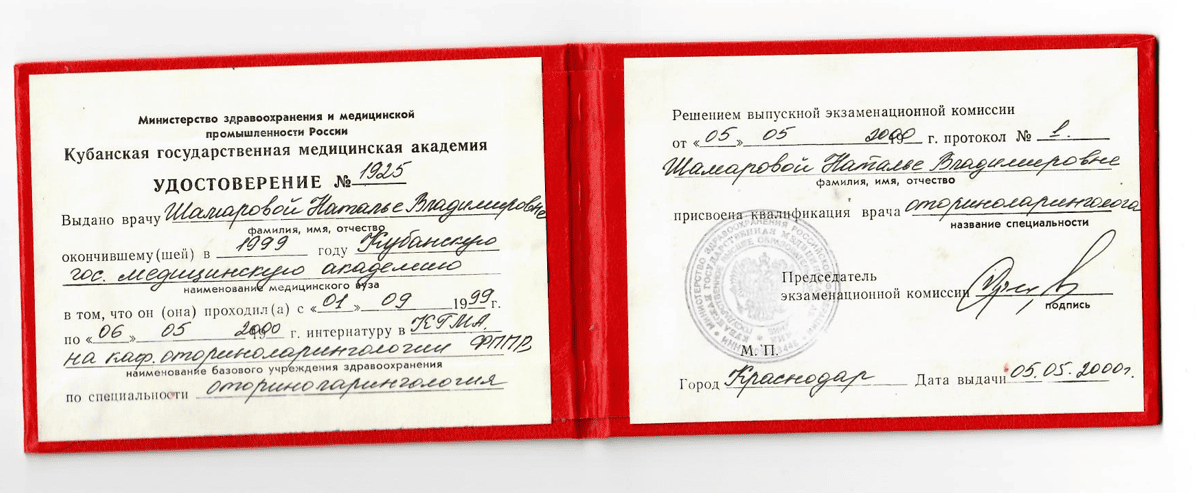 Министерство здравоохранения и медицинской
промышленности России
Кубанская государственная медицинская академия
УДОСТОВЕРЕНИЕ № 1925
Выдано врачу Шамаровой Наталье Владимировне
фамилия, имя, отчество
окончившему(шей) в 1999 году Кубанскую
гос. медицинскую академию
наименование медицинского вуза
в том, что он (она) проходил(а) с «01» 09 1999 г.
по «06» 05 2000 г. интернатуру в КГМА
на каф. оториноларингологии ФППВ
наименование базового учреждения здравоохранения
по специальности оториноларингология
Решением выпускной экзаменационной комиссии
от «05» 05 2000 г. протокол № 1.
Шамаровой Наталье Владимировне
фамилия, имя, отчество
присвоена квалификация врача оториноларинголога
название специальности
Председатель
экзаменационной комиссии
подпись
М. П.
Город Краснодар Дата выдачи 05.05.2000г.